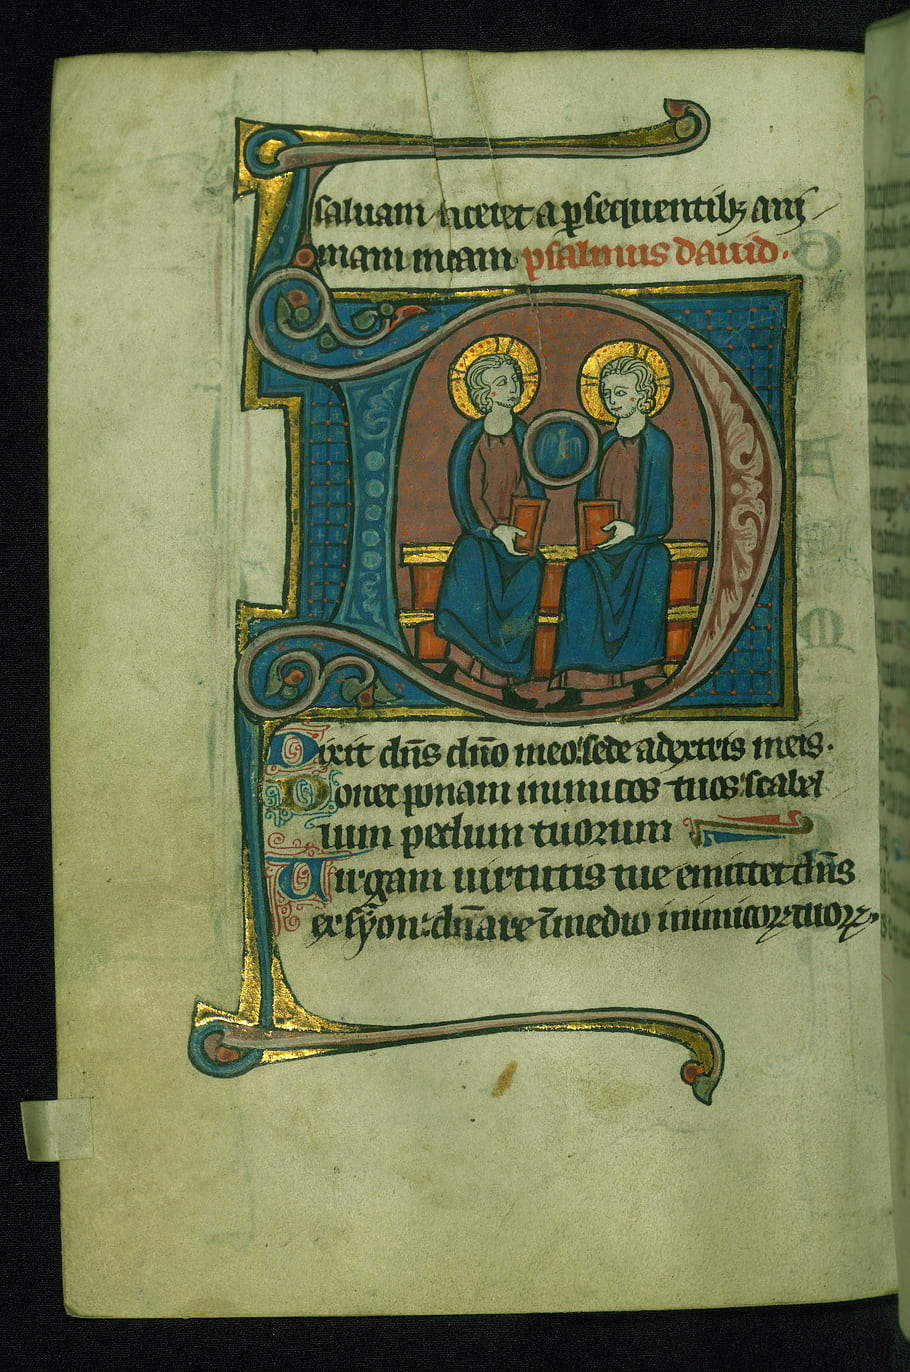 saluam faceret a ꝑsequentibꝫ ani
mam meam psalmus dauid.
Dixit dn̄s dn̄o meo: sede a dextris meis.
Donec ponam inimicos tuos: scabel
lum pedum tuorum
Uirgam uirtutis tue emittet dn̄s
ex syon: dn̄are ī medio inimicoꝝ tuoꝝ.